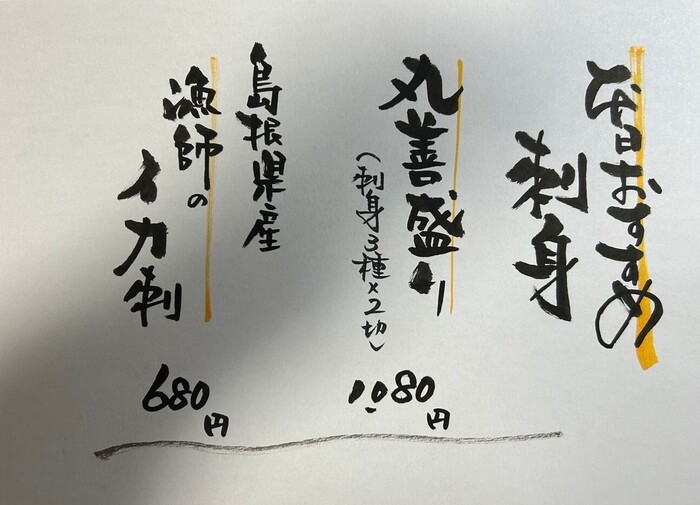 本日おすすめ
刺身
丸善盛り
(刺身3種×2切)
1,080円
島根県産
漁師の
イカ刺
680円